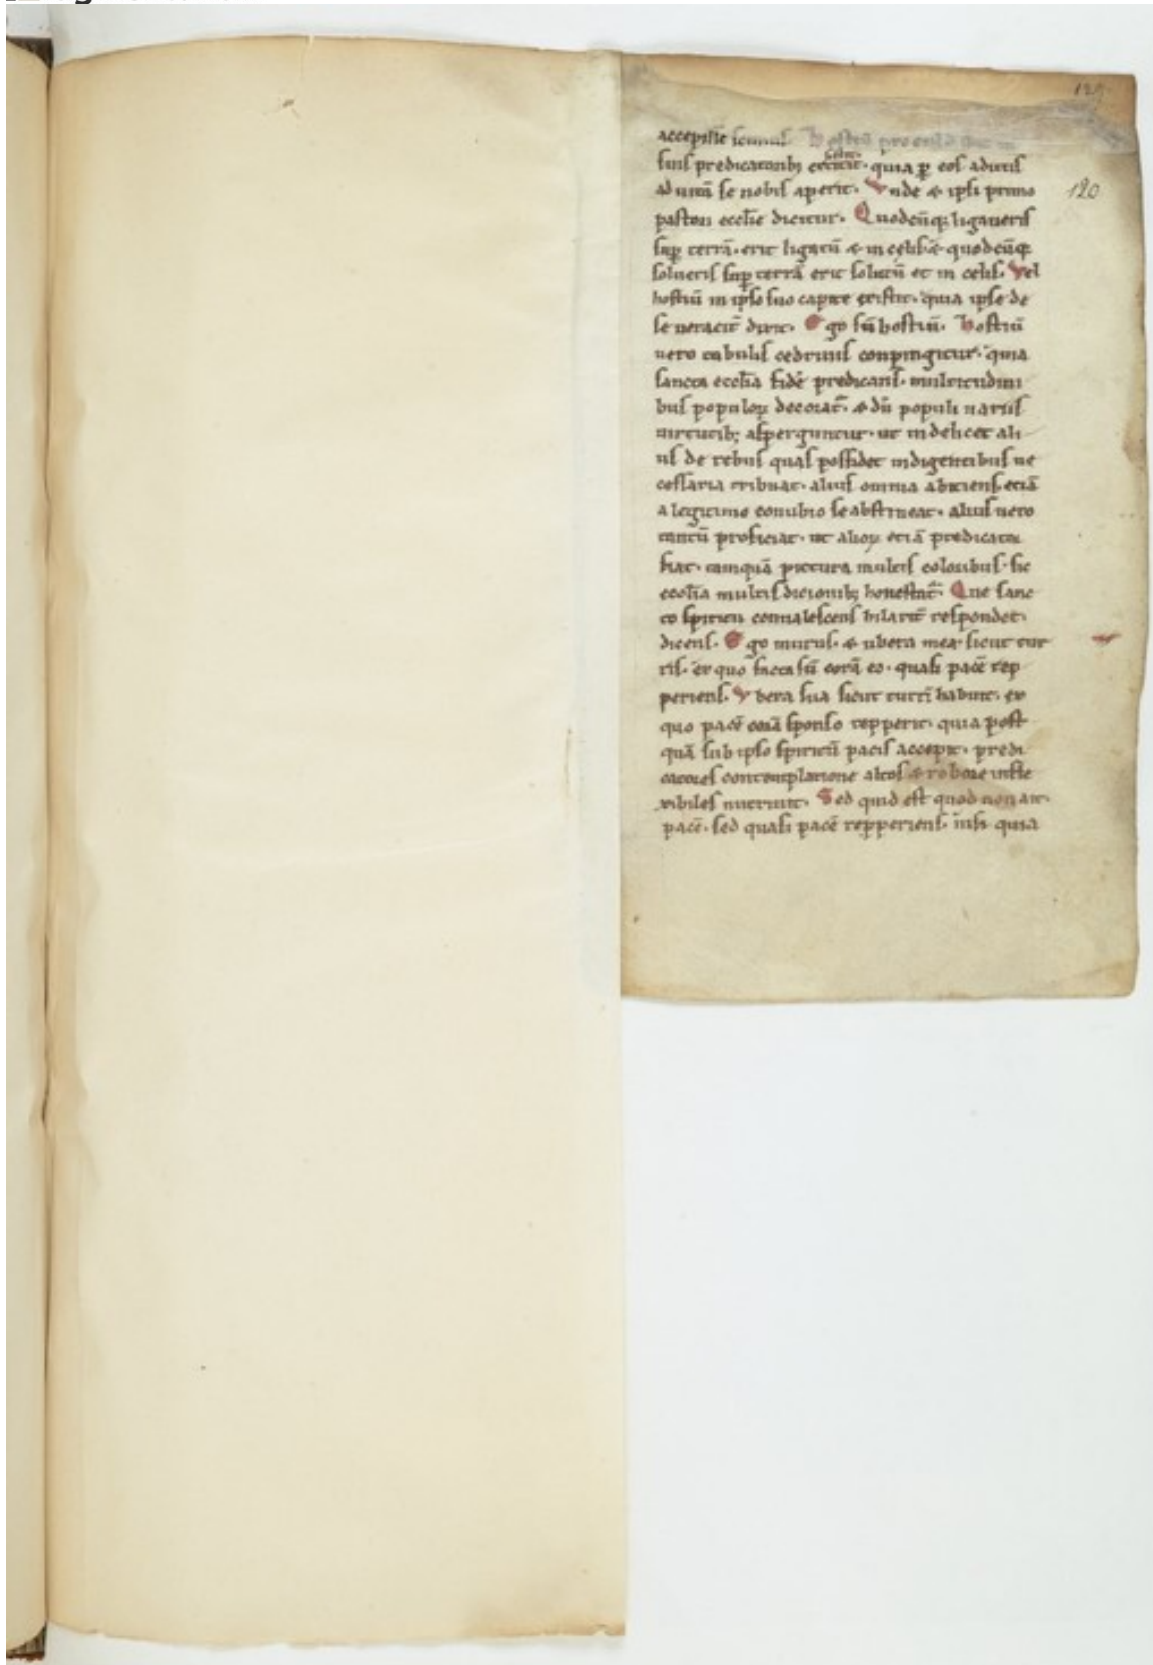 129
accepisse scimus. Hostiū
suis predicatorib; extitit. quia ꝑ eos aditus
ad uitā se nobis aperit. Vnde & ipsi primo
pastori ecclīe dicitur. Quodcūq; ligaueris
suꝑ terrā. erit ligatū & in celis & quodcūq;
solueris suꝑ terrā erit solutū et in celis. Vel
hostiū in ipso suo capite existit. quia ipse de
se ueracit̄ dixit. Ego sū hostiū. Hostiū
uero tabulis cedrinis conpingitur. quia
sancta ecclīa fidē predicans. multitudini
bus populoꝝ decorat̄. & dū populi uariis
uirtutib; asperguntur. ut uidelicet ali
us de rebus quas possidet indigentibus ne
cessaria tribuat. alius omnia abiciens. etiā
a legitimo conubio se abstineat. alius uero
tantū proficiat. ut alioꝝ etiā predicator
fiat. tamquā pictura multis coloribus. sic
ecclīa multis dicionib; honestat̄. Que sanc
to spiritu conualescens hilarit̄ respondet.
dicens. Ego murus. & ubera mea sicut tur
ris. ex quo facta sū corā eo. quasi pacē rep
periens. Vbera sua sicut turrī habuit. ex
quo pacē corā sponso repperit. quia post
quā sub ipso spiritū pacis accepit. predi
catores contemplatione altos & robore infle
xibiles nutriuit. Sed quid est quod non ait.
pacē. sed quasi pacē repperiens. nisi quia
120